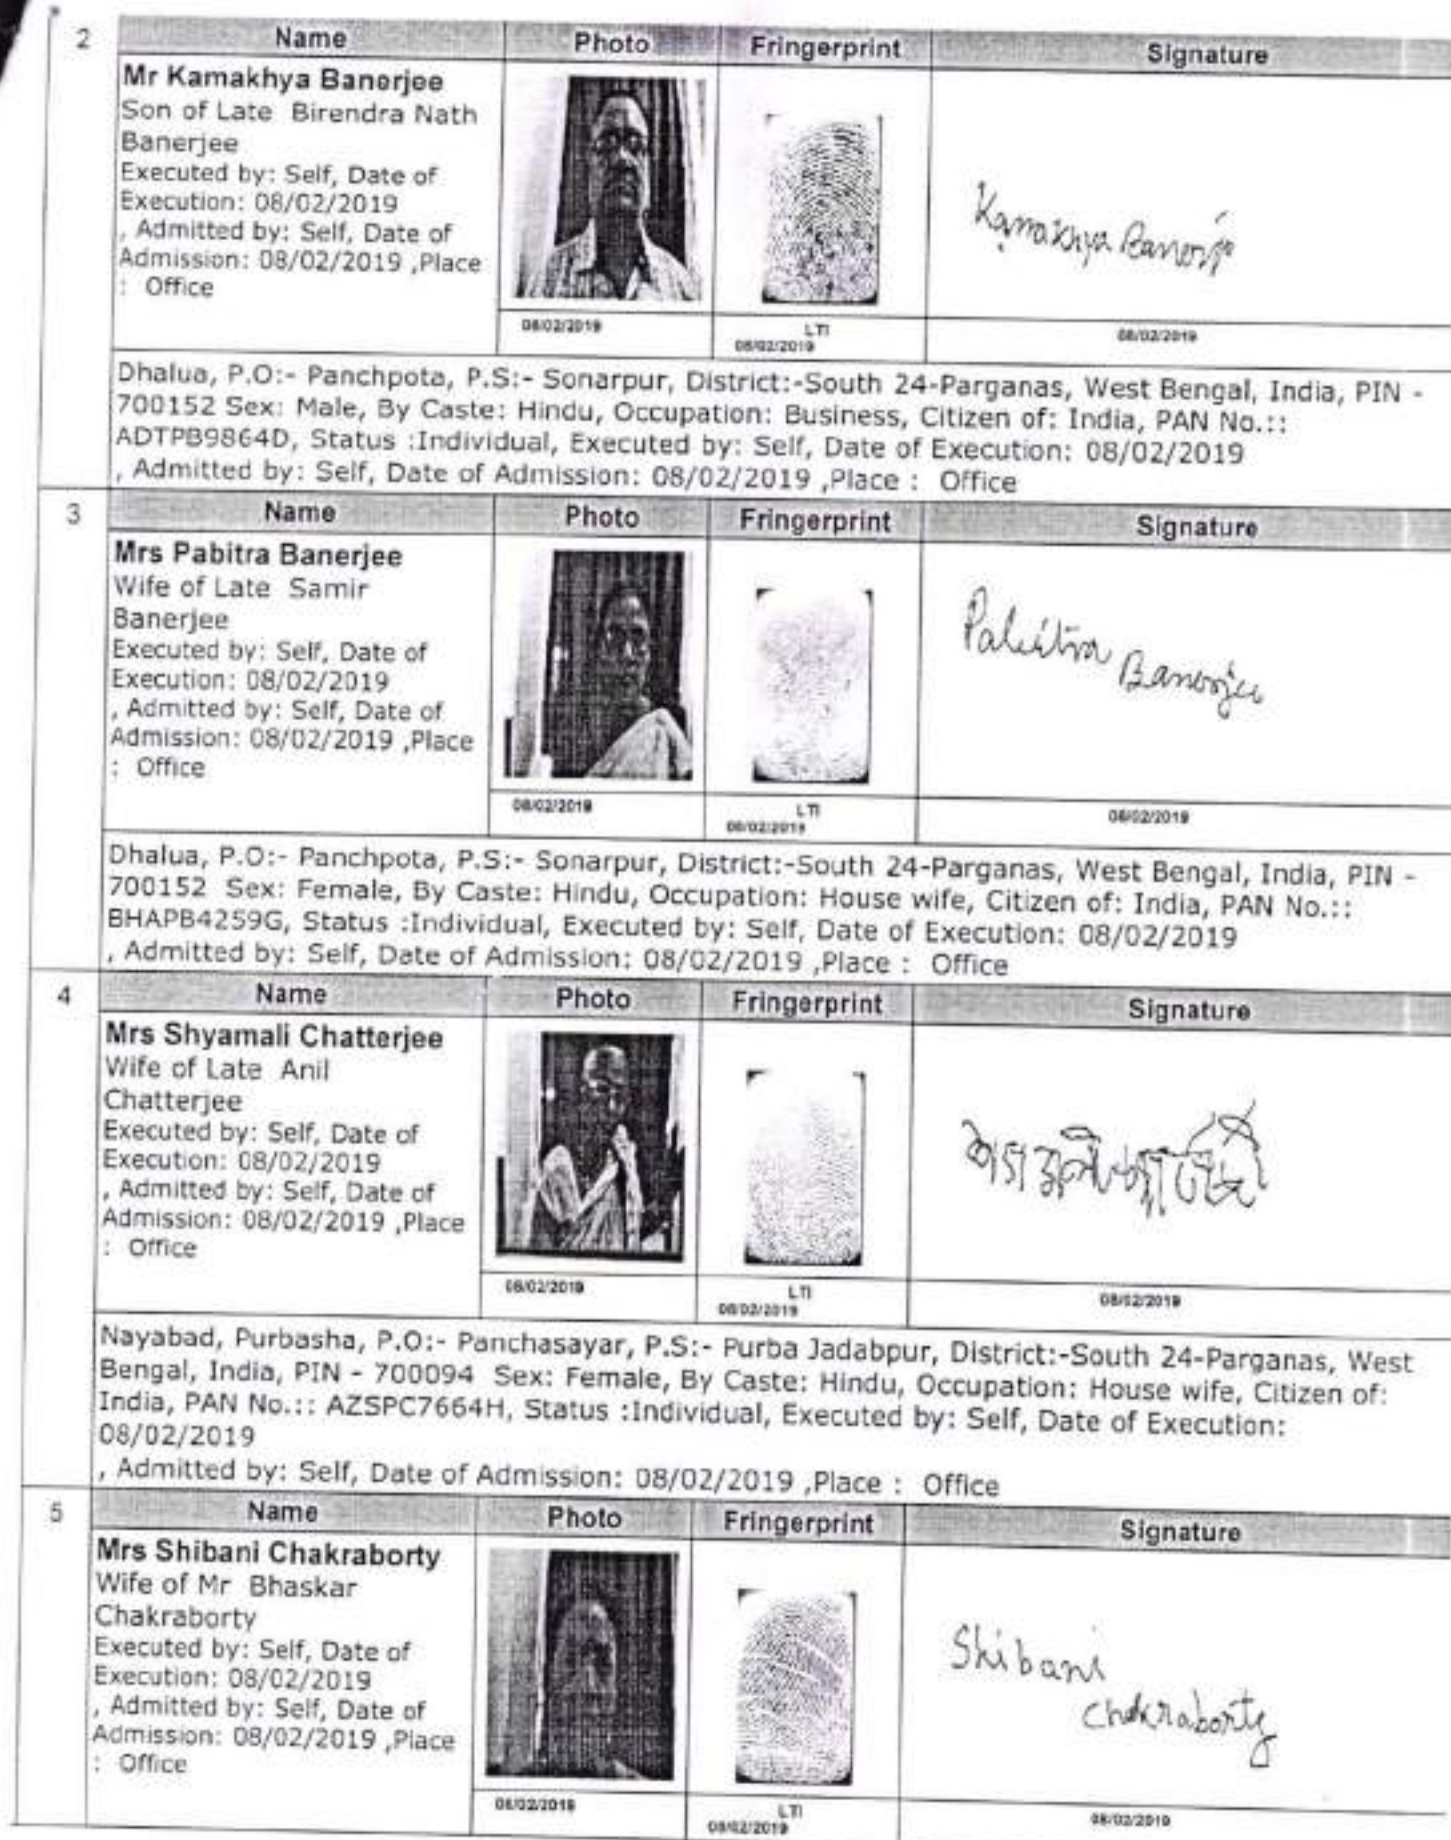 2
Name Photo Fringerprint Signature
Mr Kamakhya Banerjee
Son of Late Birendra Nath
Banerjee
Executed by: Self, Date of
Execution: 08/02/2019
, Admitted by: Self, Date of
Admission: 08/02/2019 ,Place
: Office
Kamakhya Banerje
08/02/2019 LTI 08/02/2019
08/02/2019
Dhalua, P.O:- Panchpota, P.S:- Sonarpur, District:-South 24-Parganas, West Bengal, India, PIN -
700152 Sex: Male, By Caste: Hindu, Occupation: Business, Citizen of: India, PAN No.::
ADTPB9864D, Status :Individual, Executed by: Self, Date of Execution: 08/02/2019
, Admitted by: Self, Date of Admission: 08/02/2019 ,Place : Office
3
Name Photo Fringerprint Signature
Mrs Pabitra Banerjee
Wife of Late Samir
Banerjee
Executed by: Self, Date of
Execution: 08/02/2019
, Admitted by: Self, Date of
Admission: 08/02/2019 ,Place
: Office
Pabitra Banerjee
08/02/2019 LTI 08/02/2019
08/02/2019
Dhalua, P.O:- Panchpota, P.S:- Sonarpur, District:-South 24-Parganas, West Bengal, India, PIN -
700152 Sex: Female, By Caste: Hindu, Occupation: House wife, Citizen of: India, PAN No.::
BHAPB4259G, Status :Individual, Executed by: Self, Date of Execution: 08/02/2019
, Admitted by: Self, Date of Admission: 08/02/2019 ,Place : Office
4
Name Photo Fringerprint Signature
Mrs Shyamali Chatterjee
Wife of Late Anil
Chatterjee
Executed by: Self, Date of
Execution: 08/02/2019
, Admitted by: Self, Date of
Admission: 08/02/2019 ,Place
: Office
08/02/2019 LTI 08/02/2019
08/02/2019
Nayabad, Purbasha, P.O:- Panchasayar, P.S:- Purba Jadabpur, District:-South 24-Parganas, West
Bengal, India, PIN - 700094 Sex: Female, By Caste: Hindu, Occupation: House wife, Citizen of:
India, PAN No.:: AZSPC7664H, Status :Individual, Executed by: Self, Date of Execution:
08/02/2019
, Admitted by: Self, Date of Admission: 08/02/2019 ,Place : Office
5
Name Photo Fringerprint Signature
Mrs Shibani Chakraborty
Wife of Mr Bhaskar
Chakraborty
Executed by: Self, Date of
Execution: 08/02/2019
, Admitted by: Self, Date of
Admission: 08/02/2019 ,Place
: Office
Shibani
Chakraborty
08/02/2019 LTI 08/02/2019
08/02/2019